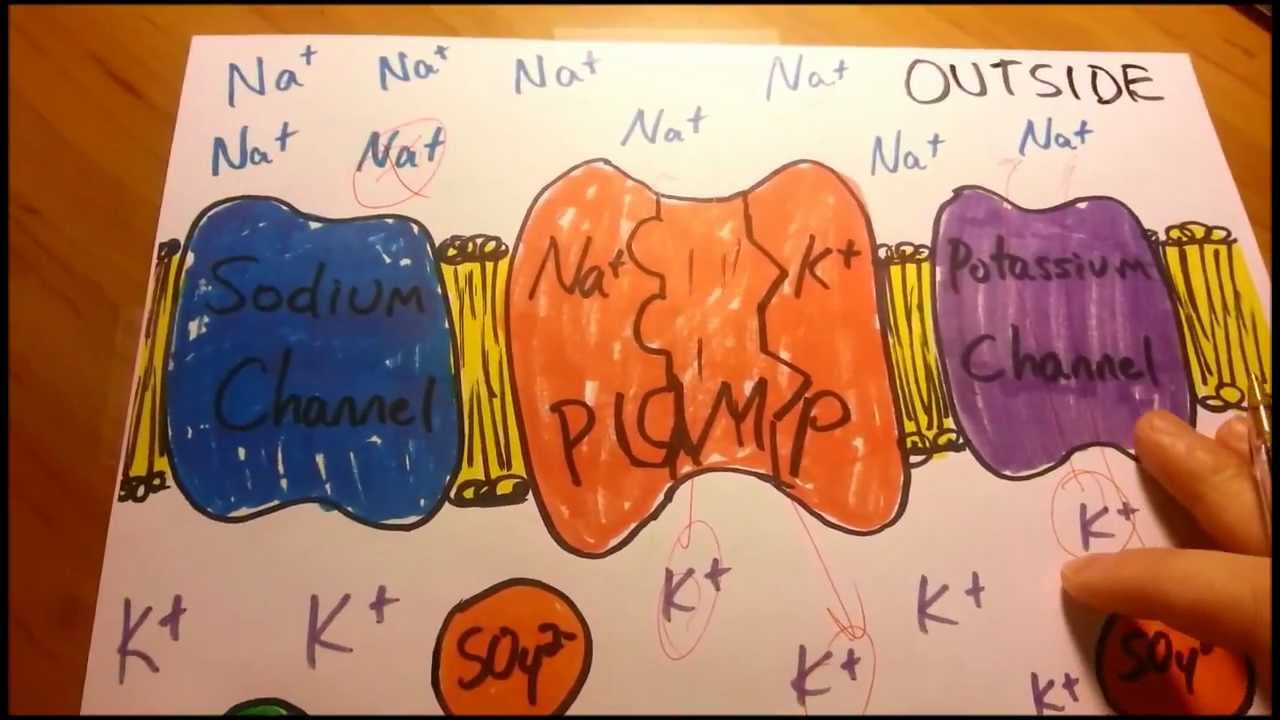 Na⁺ Na⁺ Na⁺ Na⁺ OUTSIDE
Na⁺ Na⁺ Na⁺ Na⁺ Na⁺
Sodium
Channel
Na⁺ K⁺
PUMP
Potassium
Channel
K⁺
K⁺ K⁺ K⁺ K⁺
SO₄²⁻ K⁺ SO₄
K⁺